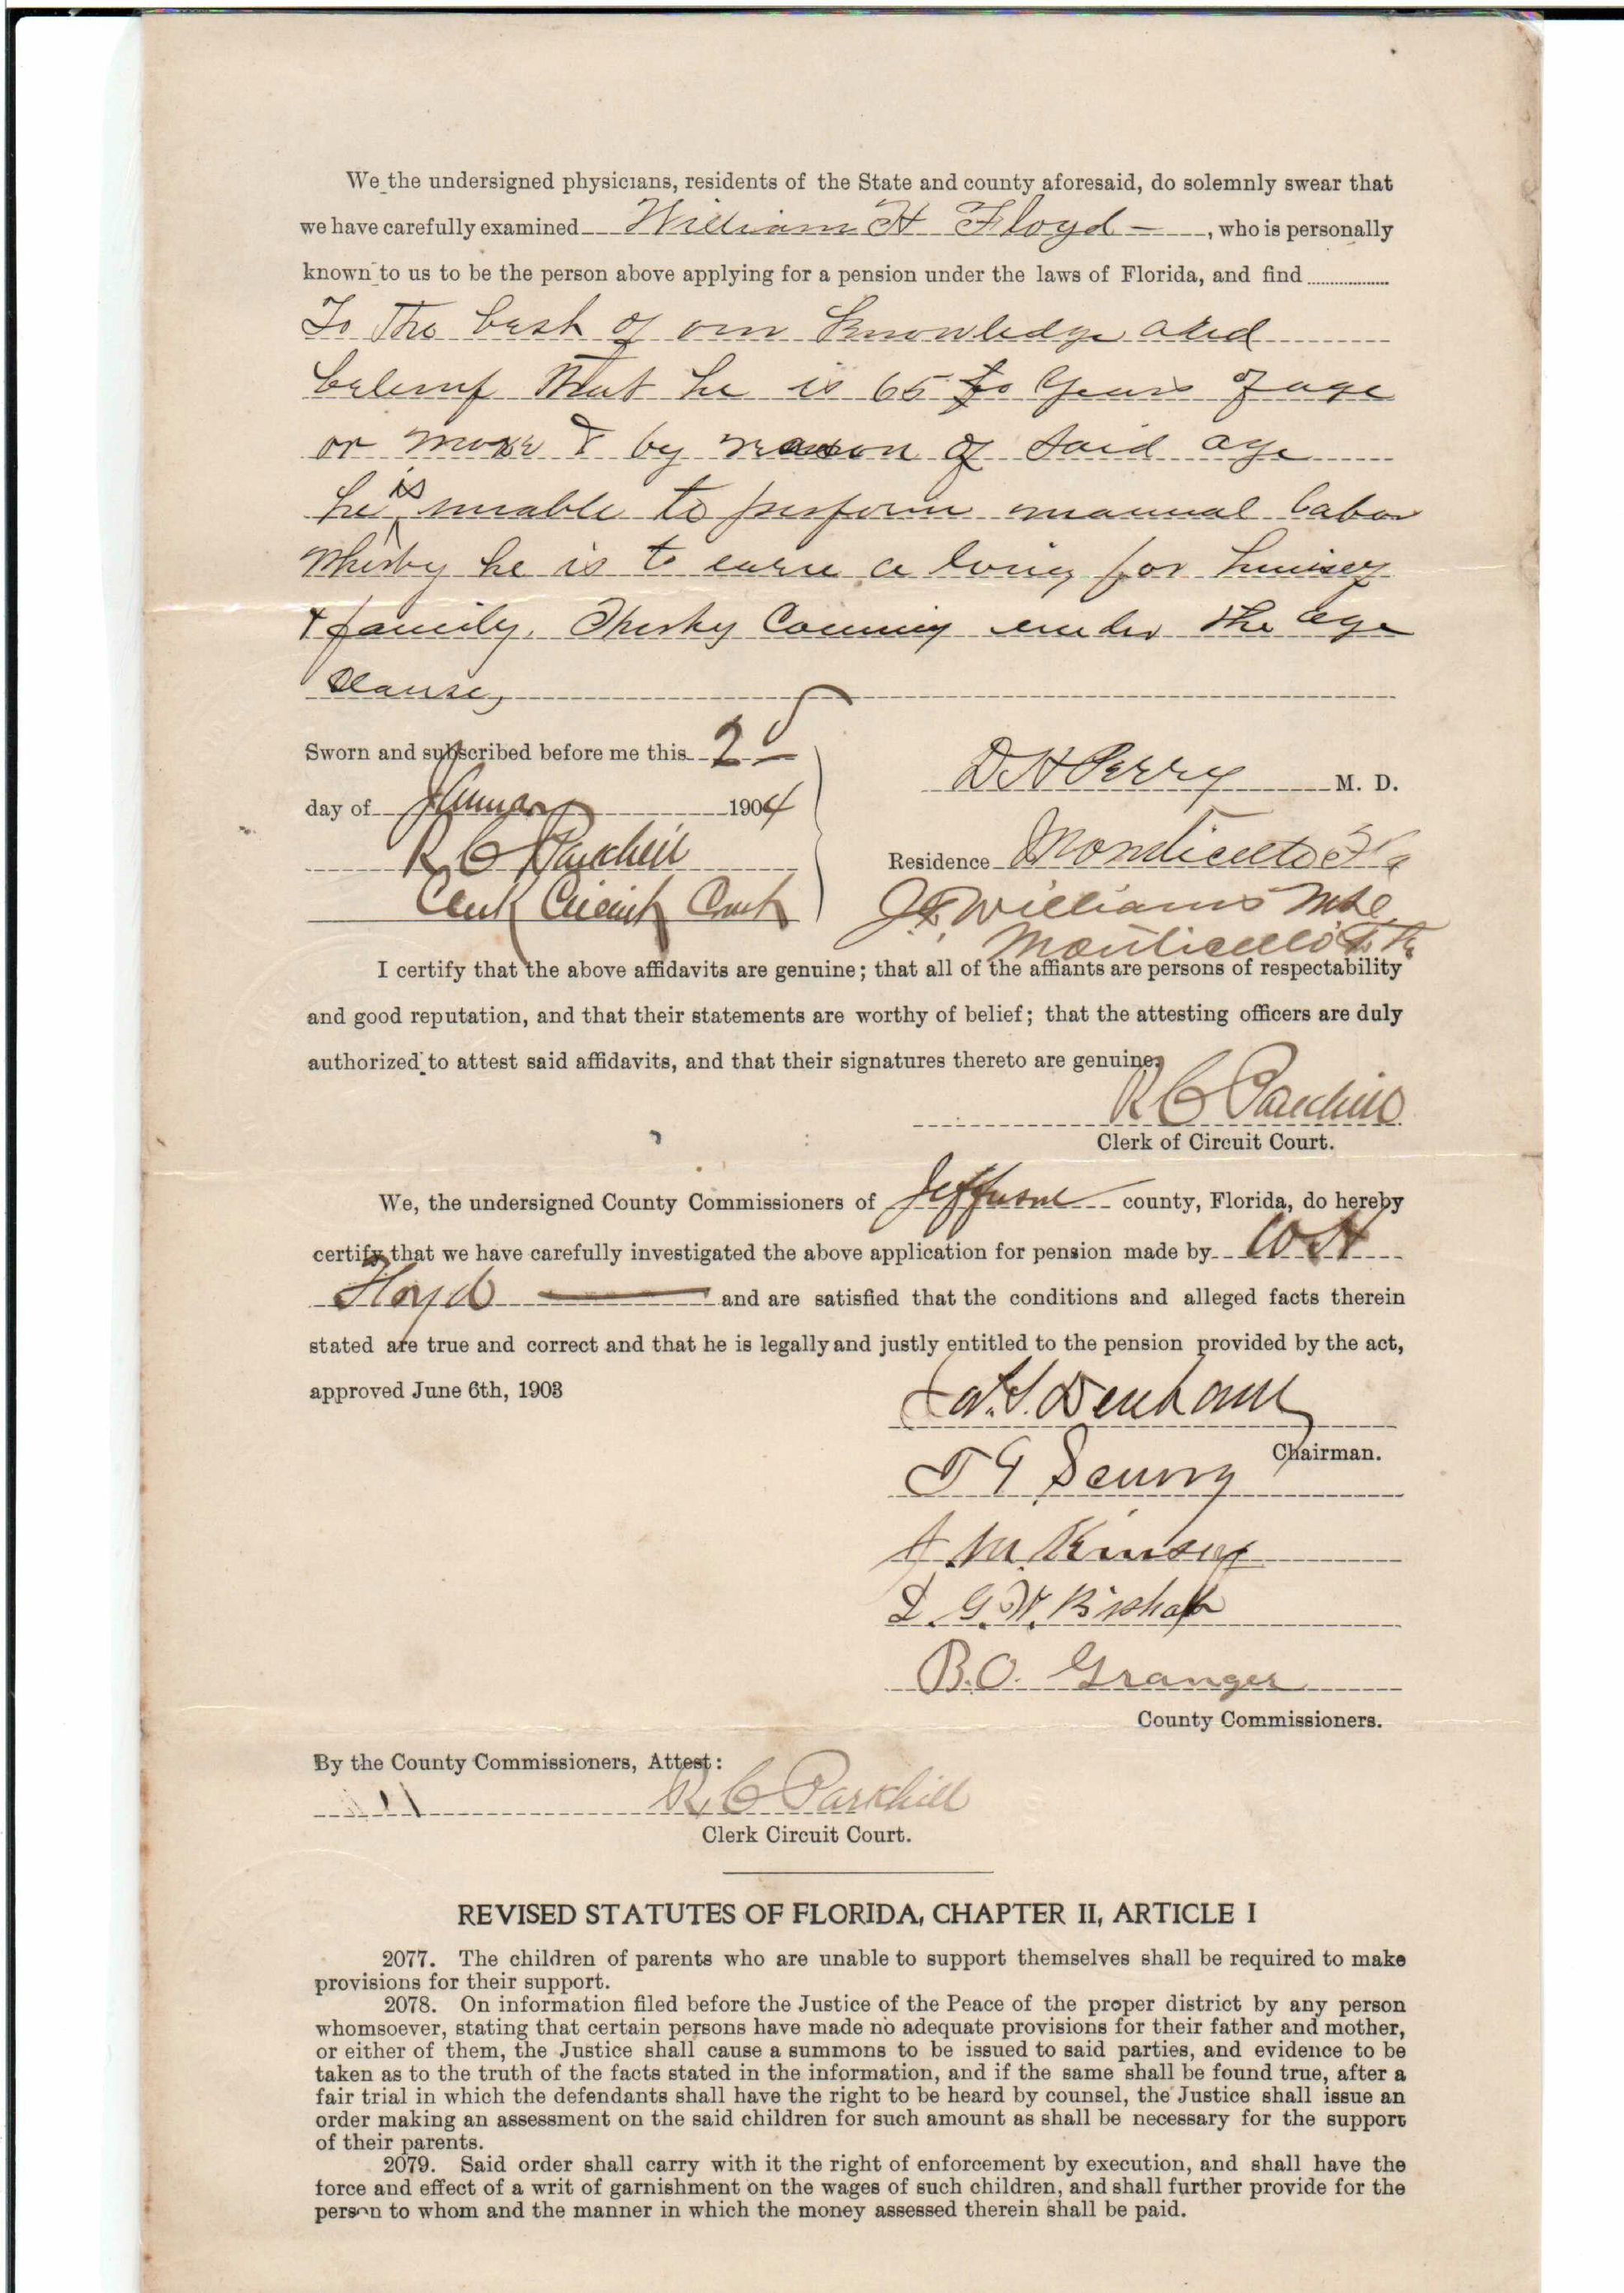 We the undersigned physicians, residents of the State and county aforesaid, do solemnly swear that
we have carefully examined William H Floyd, who is personally
known to us to be the person above applying for a pension under the laws of Florida, and find
To the best of our knowledge and
beleief that he is 65 to years of age
or more & by reason of said age
he is unable to perform manual labor
wherby he is to earn a living for himself
& family. Therby Coming under the age
clause,
Sworn and subscribed before me this 2
day of January 1904
R C Parkhill
Clerk Circuit Court
D H Perry M. D.
Residence Monticello Fla
Williams M.D.
Monticello Fla
I certify that the above affidavits are genuine; that all of the affiants are persons of respectability
and good reputation, and that their statements are worthy of belief; that the attesting officers are duly
authorized to attest said affidavits, and that their signatures thereto are genuine.
R C Parkhill
Clerk of Circuit Court.
We, the undersigned County Commissioners of Jefferson county, Florida, do hereby
certify that we have carefully investigated the above application for pension made by W H
Floyd and are satisfied that the conditions and alleged facts therein
stated are true and correct and that he is legally and justly entitled to the pension provided by the act,
approved June 6th, 1903
Denham
Chairman.
T G
M. Kinsey
G. W. Bishop
B. O. Granger
County Commissioners.
By the County Commissioners, Attest:
R. C Parkhill
Clerk Circuit Court.
REVISED STATUTES OF FLORIDA, CHAPTER II, ARTICLE I
2077. The children of parents who are unable to support themselves shall be required to make
provisions for their support.
2078. On information filed before the Justice of the Peace of the proper district by any person
whomsoever, stating that certain persons have made no adequate provisions for their father and mother,
or either of them, the Justice shall cause a summons to be issued to said parties, and evidence to be
taken as to the truth of the facts stated in the information, and if the same shall be found true, after a
fair trial in which the defendants shall have the right to be heard by counsel, the Justice shall issue an
order making an assessment on the said children for such amount as shall be necessary for the support
of their parents.
2079. Said order shall carry with it the right of enforcement by execution, and shall have the
force and effect of a writ of garnishment on the wages of such children, and shall further provide for the
person to whom and the manner in which the money assessed therein shall be paid.